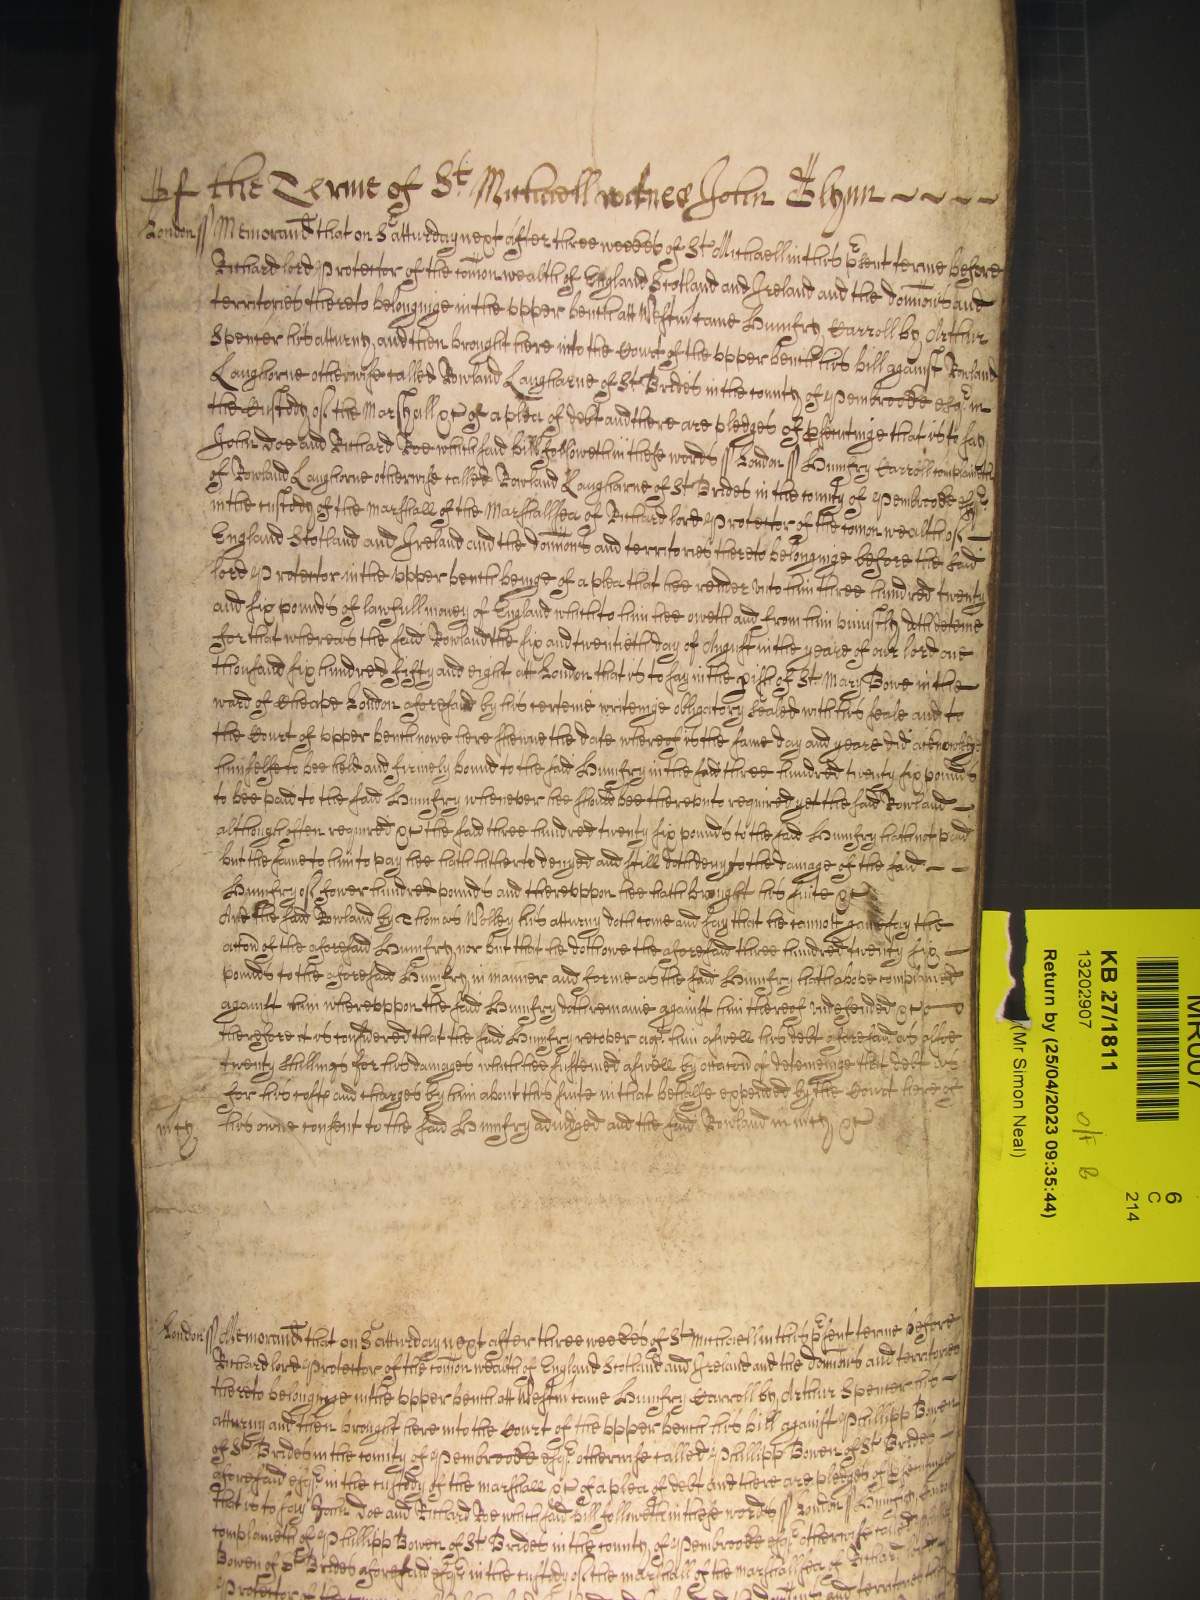 Of the Terme of St Michaell witnes John Glynn
London ss Memorand that on Satturday next after three weekes of St Michaell in this psent terme before
Richard lord Protector of the comon wealth of England Scotland and Ireland and the domions and
territories thereto belonginge in the upper bench att Westm came Humfry Carroll by Arthur
Spencer his atturny and then brought here into the Court of the upper bench his bill against Rowland
Langhorne otherwise called Rowland Langharne of St Brides in the county of Pembrooke esqr in
the Custody of the Marshall &c of a plea of debt and there are pledges of psecutinge that is to say
John Doe and Richard Roe which said bill followeth in these words ss London ss Humfry Carroll complaineth
of Rowland Langhorne otherwise called Rowland Langharne of St Brides in the county of Pembrooke esqr
in the custody of the marshall of the Marshallsea of Richard lord Protector of the comon wealth of
England Scotland and Ireland and the domions and territories thereto belonginge before the said
lord Protector in the upper bench beinge of a plea that hee render unto him three hundred twenty
and six pounds of lawfull money of England which to him hee oweth and from him uniustly deteineth
for that whereas the said Rowland the six and twentieth day of August in the yeare of our lord one
thousand six hundred fifty and eight at London that is to say in the pish of St Mary Bowe in the
ward of Cheape London aforesaid by his certeine writeinge obligatory sealed with his seale and to
the Court of upper bench nowe here shewne the date whereof is the same day and yeare did acknowledge
himselfe to bee held and firmely bound to the said Humfry in the said three hundred twenty six pounds
to bee paid to the said Humfry whenever hee should bee thereunto required yet the said Rowland
although often required &c the said three hundred twenty six pounds to the said Humfry hath not paid
but the same to him to pay hee hath hitherto denyed and still doth deny to the damage of the said
Humfry of fower hundred pounds and thereuppon hee hath brought his suite &c
And the said Rowland by Thomas his atturny doth come and say that he cannot gainesay the
acion of the aforesaid Humfry nor but that he doth owe the aforesaid three hundred twenty six
pounds to the aforesaid Humfry in manner and forme as the said Humfry hath above complained
against him whereuppon the said Humfry doth remaine against him thereof undefended &c
therefore it is considered that the said Humfry recover agt him aswell his debt aforesaid as alsoe
twenty shillings for his damages which hee susteined aswell by occacon of deteineinge that debt as
for his costs and charges by him about his suite in that behalfe expended by the Court here of
mcy his owne consent to the said Humfry adiudged and the said Rowland in mcy &c
London ss Memorand that on Satturday next after three weekes of St Michaell in this psent terme before
Richard lord Protector of the comon wealth of England Scotland and Ireland and the domions and territories
thereto belonginge in the upper bench att Westm came Humfry Carroll by Arthur Spencer his
atturny and then brought here into the Court of the upper bench his bill against Phillipp Bowen
of St Brides in the county of Pembrooke esqr otherwise called Phillipp Bowen of St Brides
aforesaid esqr in the custody of the marshall &c of a plea of debt and there are pledges of psecutinge
that is to say John Doe and Richard Roe which said bill followeth in these words ss London ss Humfry Carroll
complaineth of Phillipp Bowen of St Brides in the county of Pembrooke esqr otherwise called
Bowen of St Brides aforesaid esqr in the custody of the marshall of the marshallsea of Richard lord
Protector of the and territories
MR007
6
C
214
KB 27/1811
13202907
O/F B
Return by (25/04/2023 09:35:44)
(Mr Simon Neal)